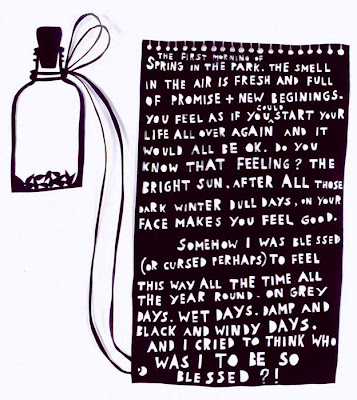 THE FIRST MORNING OF
SPRING IN THE PARK. THE SMELL
IN THE AIR IS FRESH AND FULL
OF PROMISE + NEW BEGININGS.
YOU FEEL AS IF YOU COULD START YOUR
LIFE ALL OVER AGAIN AND IT
WOULD ALL BE OK. DO YOU
KNOW THAT FEELING? THE
BRIGHT SUN, AFTER ALL THOSE
DARK WINTER DULL DAYS, ON YOUR
FACE MAKES YOU FEEL GOOD.
SOMEHOW I WAS BLESSED
(OR CURSED PERHAPS) TO FEEL
THIS WAY ALL THE TIME ALL
THE YEAR ROUND. ON GREY
DAYS. WET DAYS. DAMP AND
BLACK AND WINDY DAYS.
AND I CRIED TO THINK WHO
WAS I TO BE SO
BLESSED?!